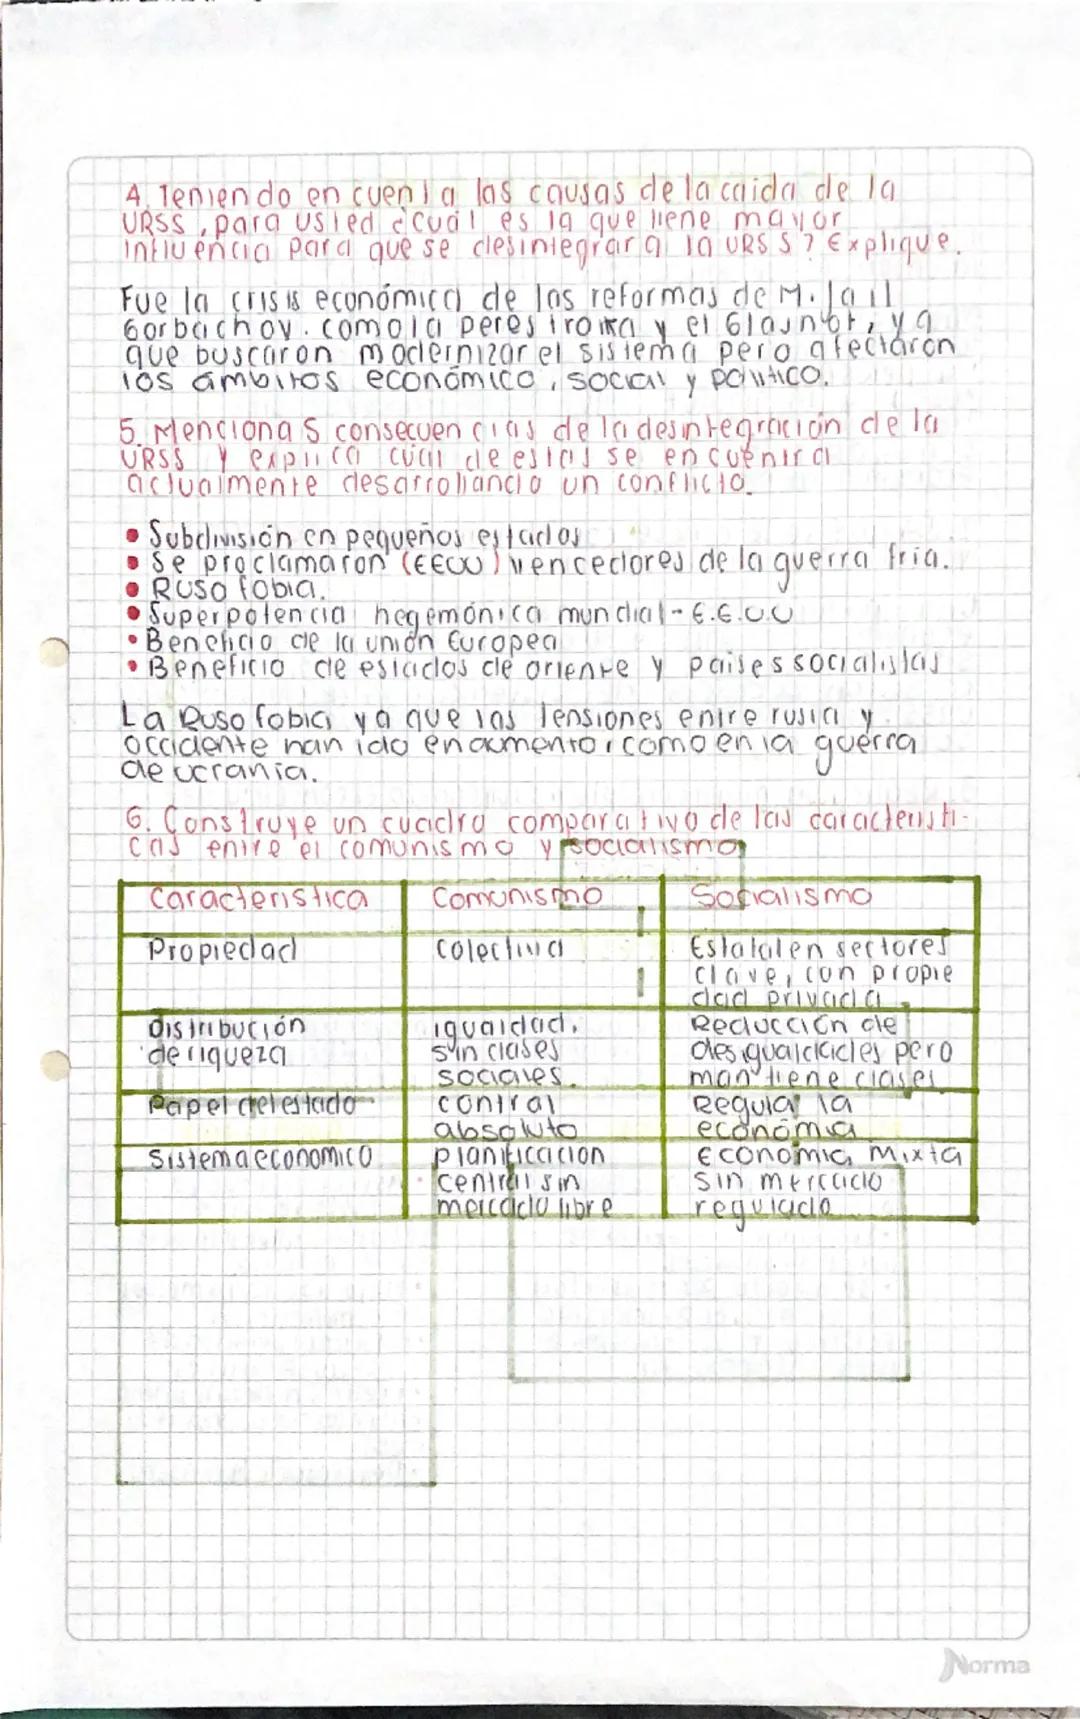 4. Teniendo en cuenta las causas de la caida de la
URSS, para usted ¿cuál es la que tiene mayor
influencia para que se desintegrara la URSS? Explique.
Fue la crisis económica de las reformas de Mijail
Gorbachov. como la perestroika y el Glasnot, ya
que buscaron modernizar el sistema pero afectaron
los ámbitos económico, social y político.
5. Menciona 5 consecuencias de la desintegración de la
URSS y explica cuál de estas se encuentra
actualmente desarrollando un conflicto.
• Subdivisión en pequeños estados
• Se proclamaron (EEUU) vencedores de la guerra fria.
• Rusofobia.
• Superpotencia hegemónica mundial - E.E.U.U
• Beneficio de la unión Europea
• Beneficio de estados de oriente y paises socialistas
La Rusofobia ya que las tensiones entre rusia y
occidente han ido en aumento, como en la guerra
de ucrania.
6. Construye un cuadro comparativo de las caracteristi-
cas entre el comunismo y socialismo
Caracteristica Comunismo Socialismo
Propiedad colectiva Estatal en sectores
clave, con propie
dad privada
distribución igualdad, Reducción de
de riqueza sin clases desigualdades pero
sociales. mantiene clases
Papel del estado control Regula la
absoluto economía
Sistema economico planificacion Economia mixta
central sin sin mercado
mercado libre regulado
Norma